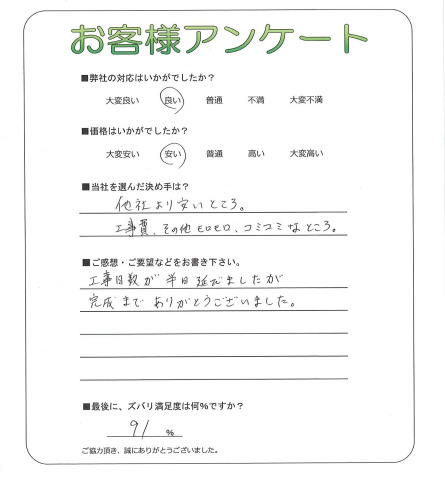 お客様アンケート
■弊社の対応はいかがでしたか？
大変良い 良い 普通 不満 大変不満
■価格はいかがでしたか？
大変安い 安い 普通 高い 大変高い
■当社を選んだ決め手は？
他社より安いところ。
工事費、その他モロモロ、コミコミなところ。
■ご感想・ご要望などをお書き下さい。
工事日数が半日延びましたが
完成までありがとうございました。
■最後に、ズバリ満足度は何％ですか？
91 ％
ご協力頂き、誠にありがとうございました。